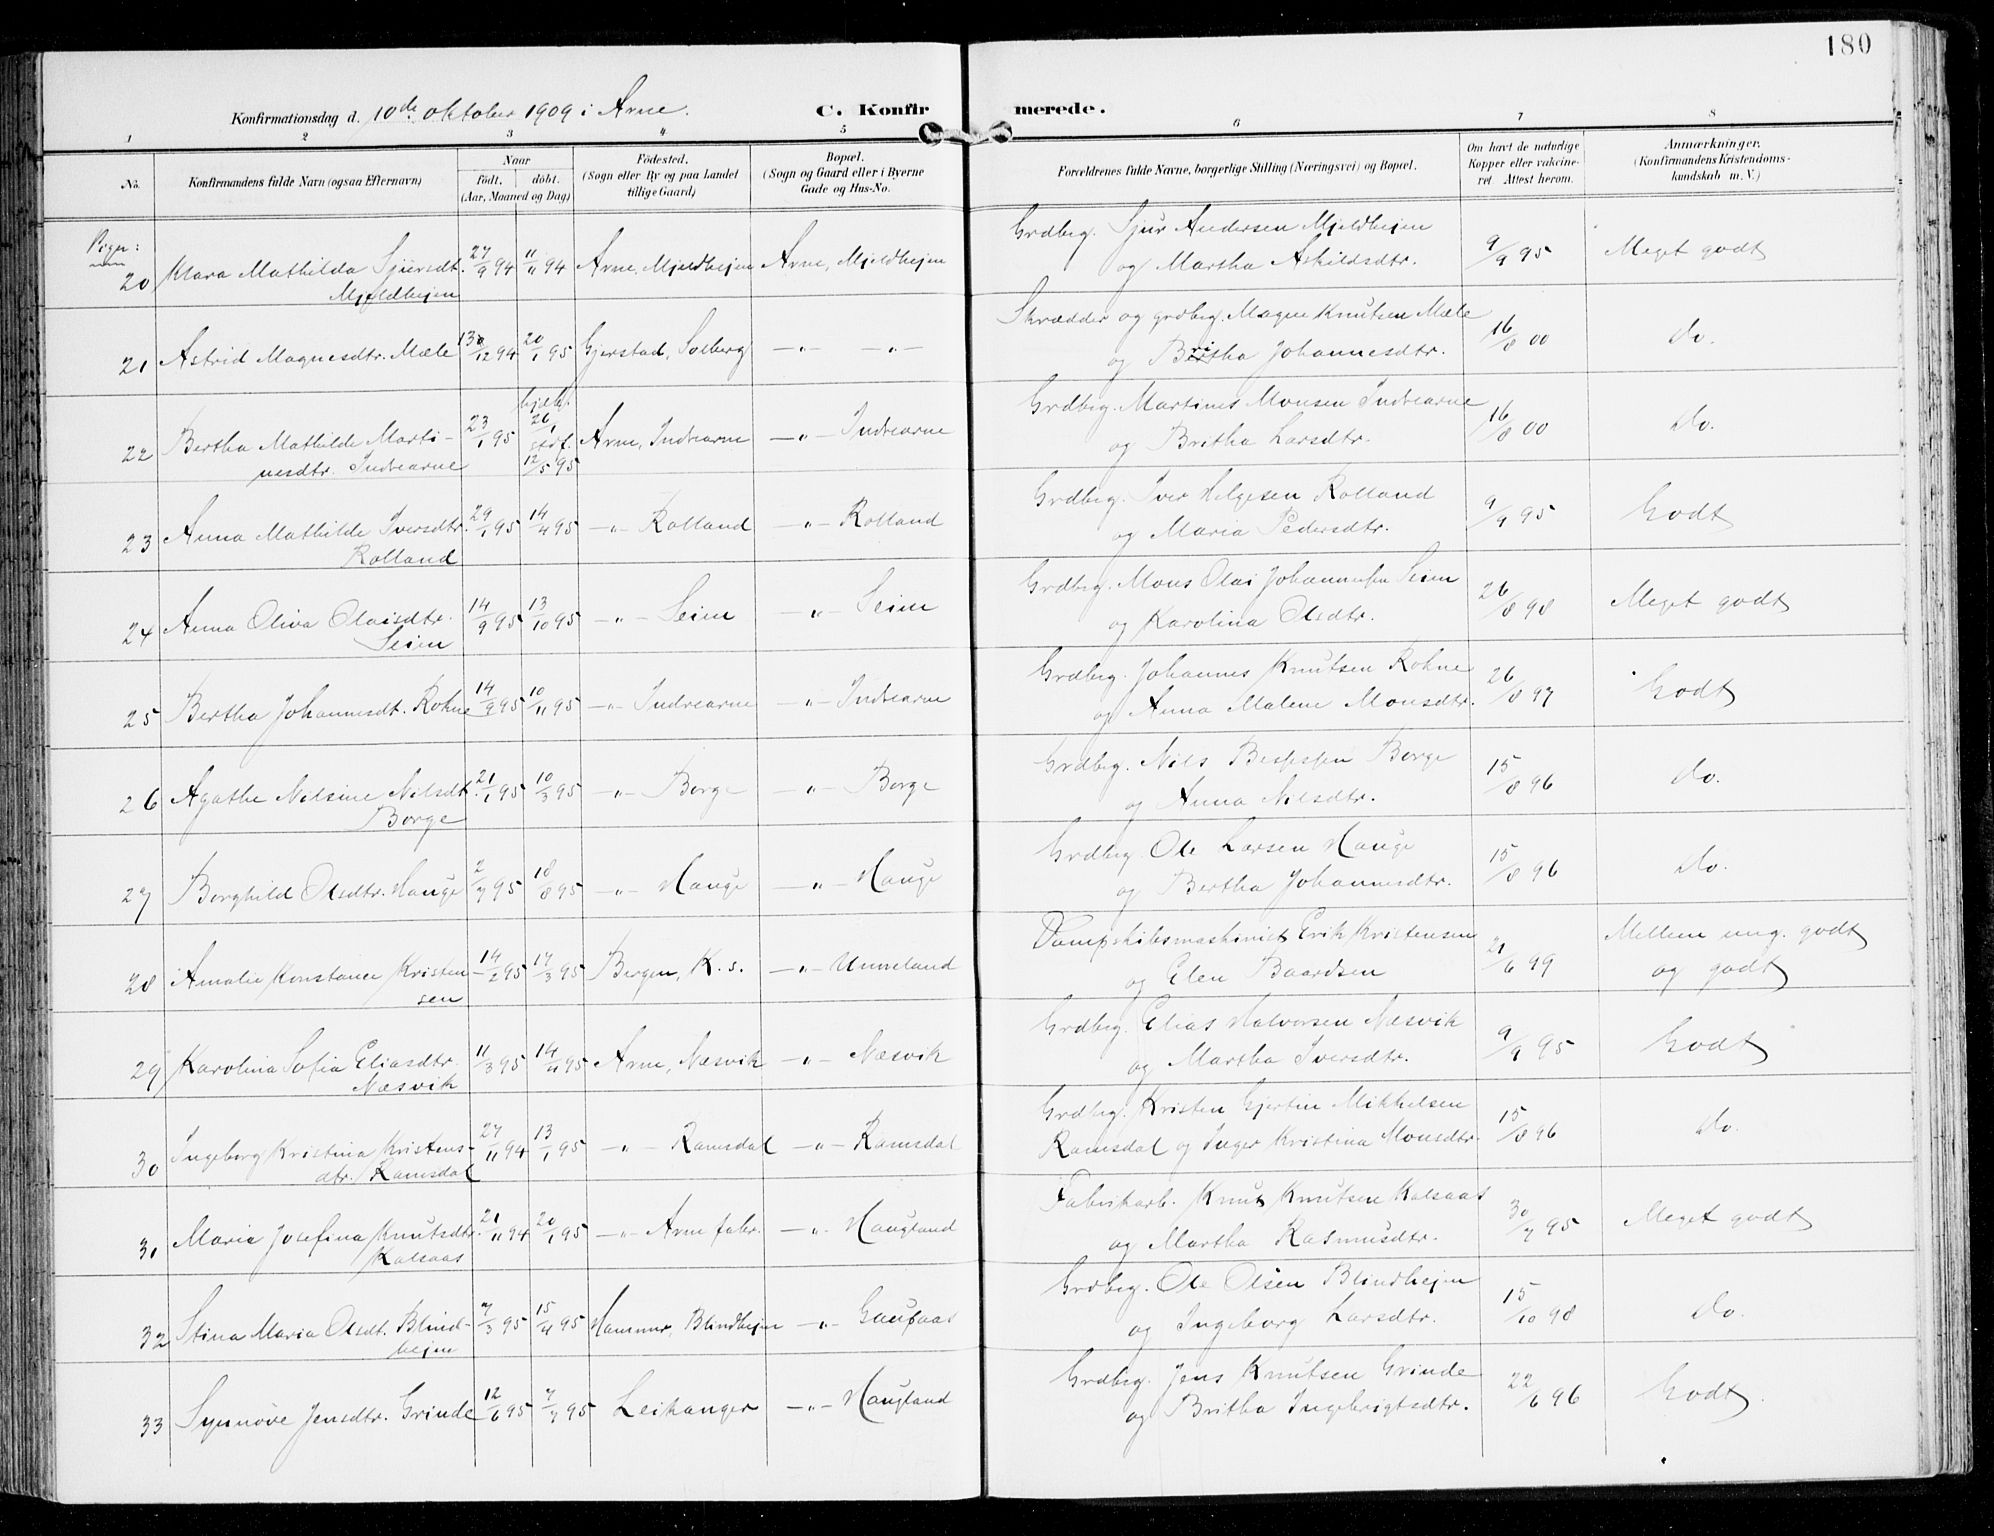 180
Konfirmationsdag d. 10de oktober 1909 i Arne.
C. Konfirmerede.
1 2 3 4 5 6 7 8
No. Konfirmandens fulde Navn (ogsaa Efternavn) Naar födt, döbt. (Aar, Maaned og Dag) Födested. (Sogn eller By og paa Landet tillige Gaard) Bopæl. (Sogn og Gaard eller i Byerne Gade og Hus-No. Forældrenes fulde Navne, borgerlige Stilling (Næringsvei) og Bopæl. Om havt de naturlige Kopper eller vakcineret. Attest herom. Anmærkninger, (Konfirmandens Kristendomskundskab m. V.)
Grdbrg. Sjur Andersen Mjeldhejen
20 Klara Mathilda Sjursdt. 27/9 94 11/11 94 Arne, Mjeldhejen Arne, Mjeldhejen og Martha Askildsdtr. 9/9 95 Meget godt
Mjeldhejen
Skrædder og grdbrg. Magne Knutsen Mæle
21 Astrid Magnesdtr. Mæle 20/1 95 Gjerstad, Solberg —"— —"— og Johannesdtr. 16/8 00 do.
hjdb. 26/1
Grdbrg. Martines Monsen Indrearne
22 Bertha Mathilde Marti- 23/1 95 Arne, Indrearne —"— Indrearne og Britha Larsdtr. 16/8 00 do.
nesdtr. Indrearne 12/5 95
Grdbrg. Iver Helgesen Rolland
23 Anna Mathilde Iversdtr. 29/1 95 14/4 95 —"— Rolland —"— Rolland og Maria Pedersdtr. 9/9 95 Godt
Rolland
Grdbrg. Mons Olai Johannesen Seim
24 Anna Oliva Olaisdtr. 14/9 95 13/10 95 —"— Seim —"— Seim og Karolina Olsdtr. 26/8 98 Meget godt
Seim
Grdbrg. Johannes Knutsen Rohne
25 Bertha Johannesdt. Rohne 14/9 95 10/11 95 —"— Indrearne —"— Indrearne og Anna Malene Monsdtr. 26/8 97 Godt
Grdbrg. Nils Borge
26 Agathe Nilsine Nilsdt. 21/1 95 10/3 95 —"— Borge —"— Borge og Anna Nilsdtr. 15/8 96 do.
Borge
Grdbrg. Ole Larsen Hauge
27 Borghild Olsdtr. Hauge 2/7 95 18/8 95 —"— Hauge —"— Hauge og Bertha Johannesdtr. 15/8 96 do.
Dampskibsmaskinist Erik Kristensen Mellem mg. godt
28 Amalie Konstance Kristen- 14/2 95 17/3 95 Bergen, K. s. —"— Unneland og Elen Baardsen 21/6 99 og godt
sen
Grdbrg. Elias Halvorsen Næsvik
29 Karolina Sofia Eliasdtr. 11/3 95 14/4 95 Arne, Næsvik —"— Næsvik og Martha Iversdtr. 9/9 95 Godt
Næsvik
Grdbrg. Kristen Gjertin Mikkelsen
30 Ingeborg Kristina Kristens- 27/11 94 13/1 95 —"— Ramsdal —"— Ramsdal Ramsdal og Inger Kristina Monsdtr. 15/8 96 do.
dtr. Ramsdal
Fabrikarb. Knut Knutsen Kalsaas
31 Maria Josefina Knutsdtr. 21/11 94 20/1 95 —"— Arne fabr. —"— Haugland og Martha Rasmusdtr. 30/7 95 Meget godt
Kalsaas
Grdbrg. Ole Olsen Blindhejen
32 Stina Maria Olsdt. Blind- 7/3 95 15/4 95 Hammer, Blindhejen —"— Gaupaas og Ingeborg Larsdtr. 15/10 98 do.
hejen
Grdbrg. Jens Knutsen Grinde
33 Synnöve Jensdtr. Grinde 12/6 95 7/7 95 Leikanger —"— Haugland og Britha Ingebrigtsdtr. 22/6 96 Godt